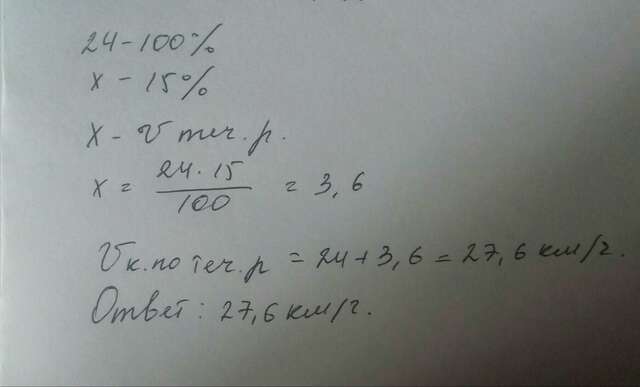 24 - 100%
x - 15%
x - V теч. р.
x = 24 · 15 / 100 = 3,6
Vк. по теч. р = 24 + 3,6 = 27,6 км/г.
Ответ: 27,6 км/г.